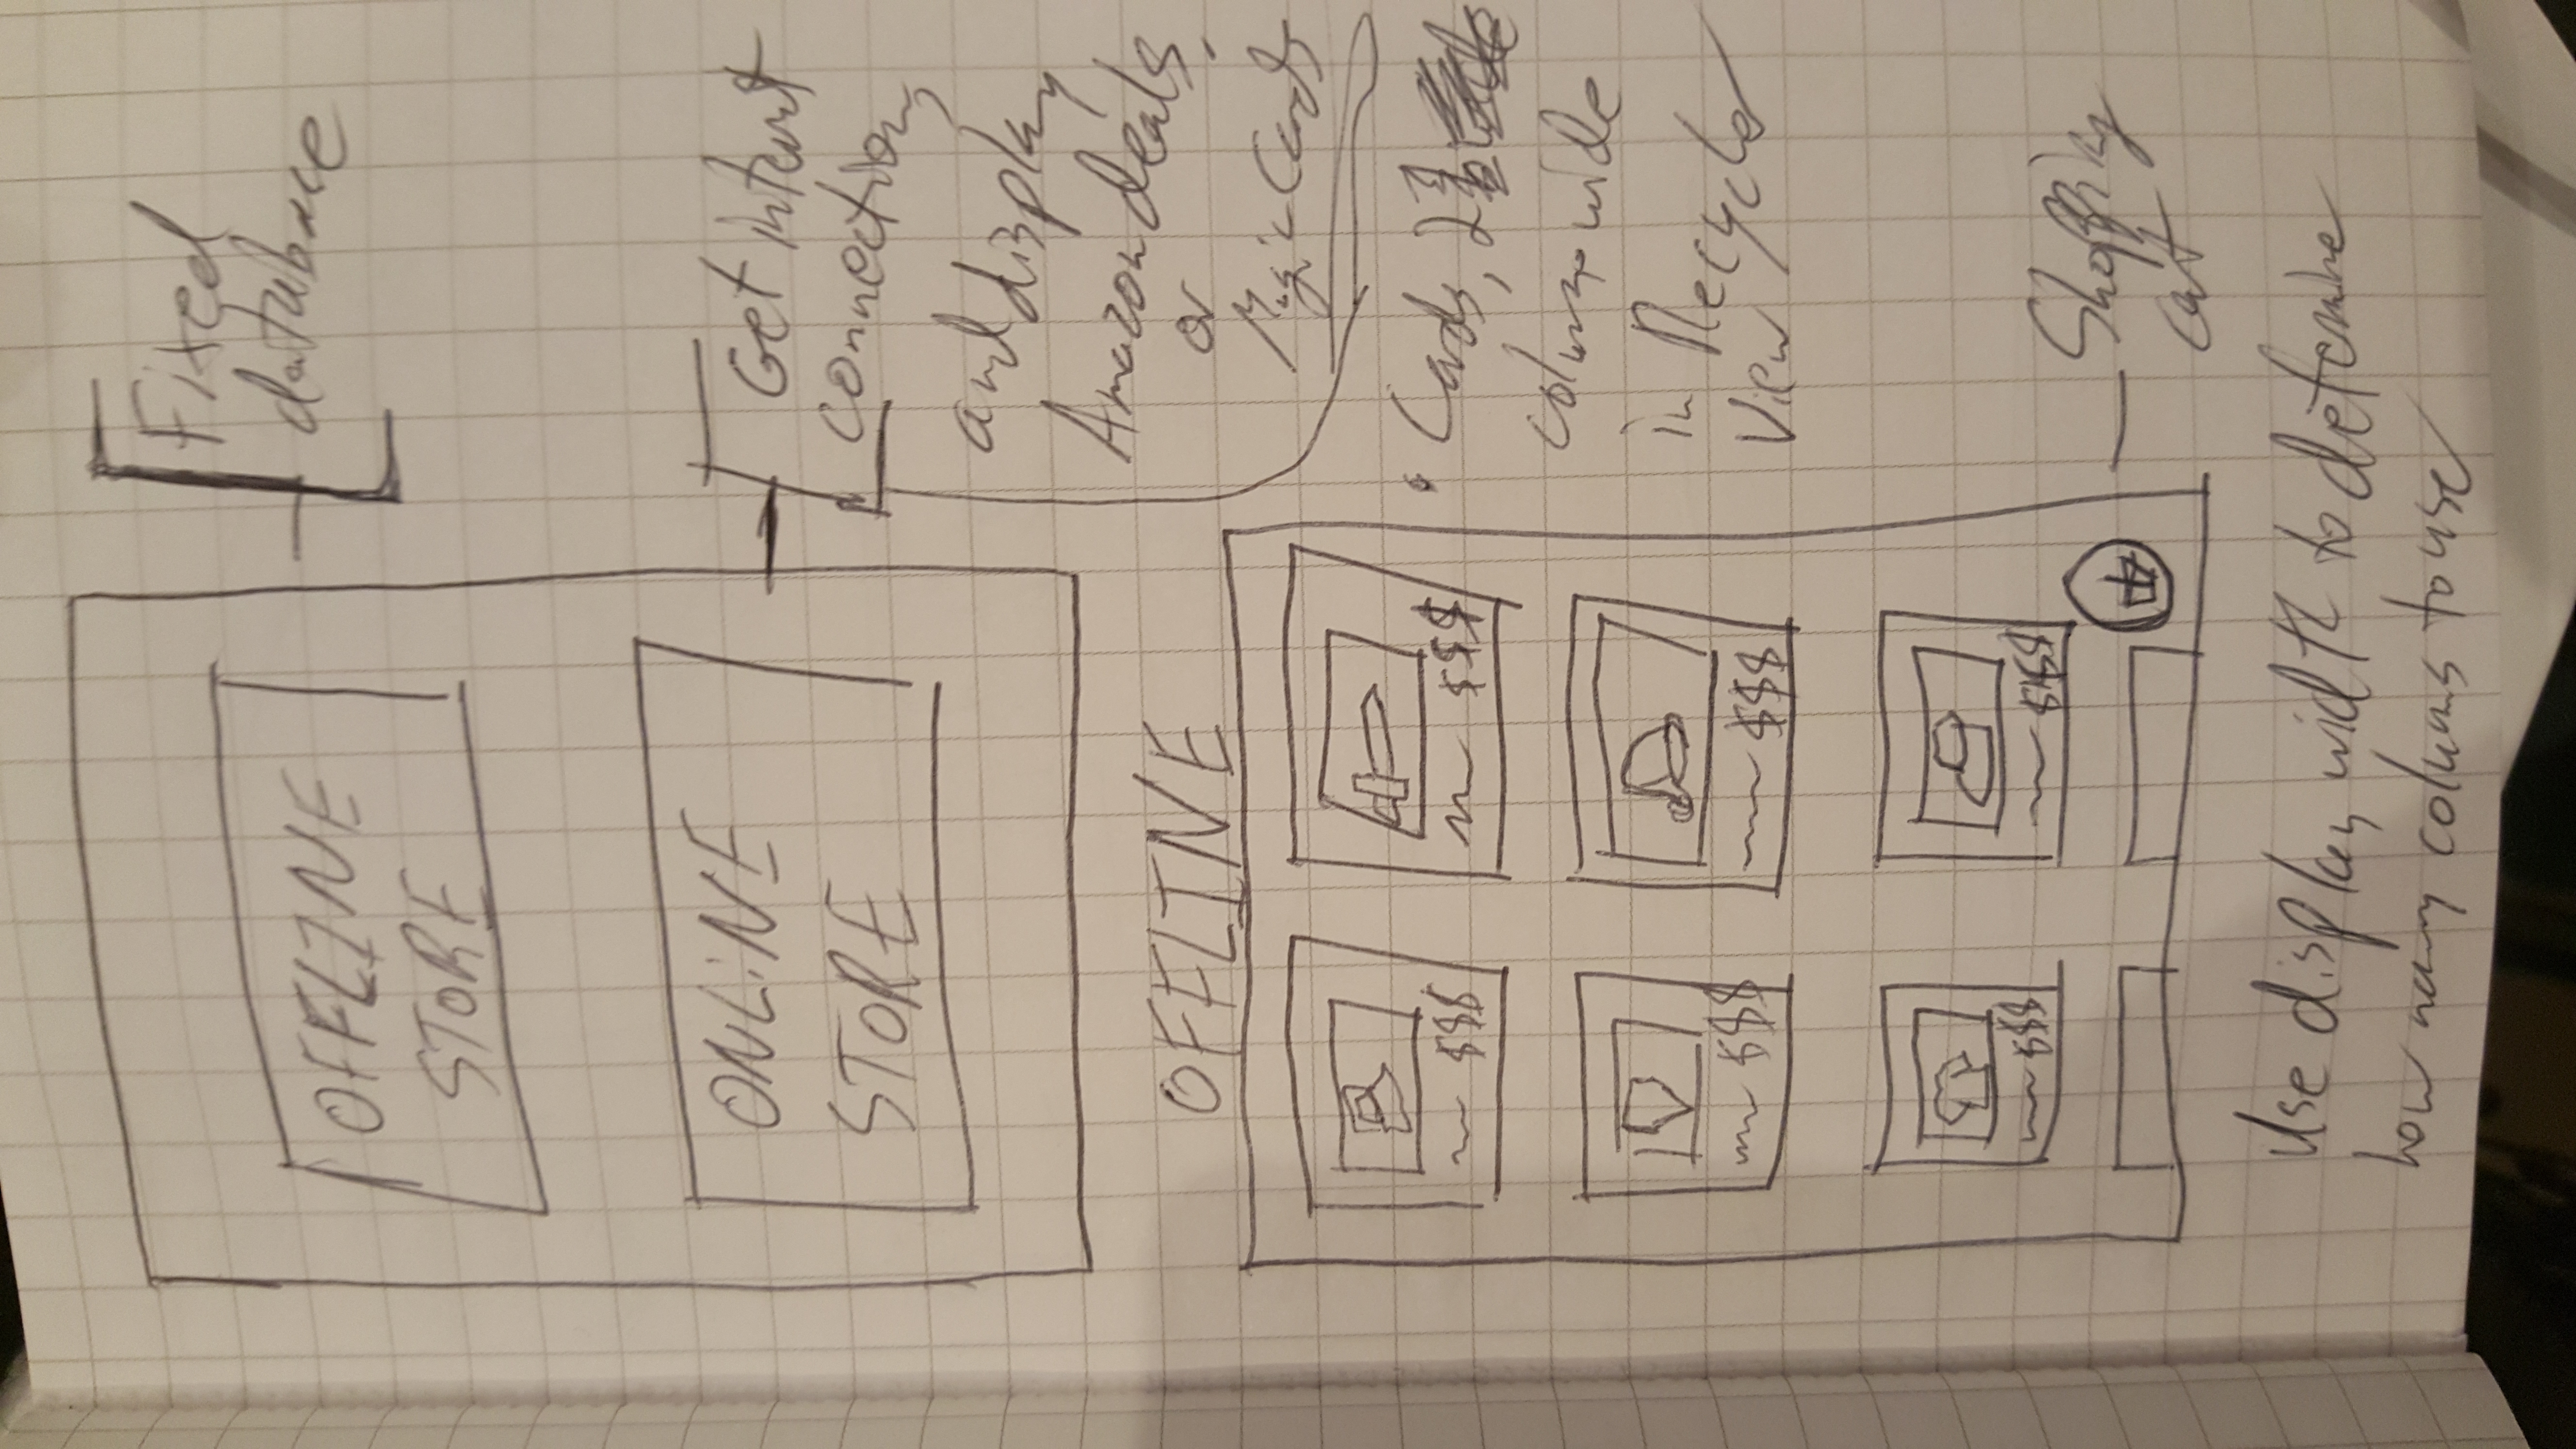 OFFLINE
STORE
Fixed
database
ONLiNE
STORE
Get internet
connection,
and display
Amazon deals,
or
Magic Cards
OFFLINE
$$$
$$$
• Cards, 2
wide
in Recycler
View
$$$
$$$
$$$
$$$
Shopping
cart
Use display width to determine
how many columns to use